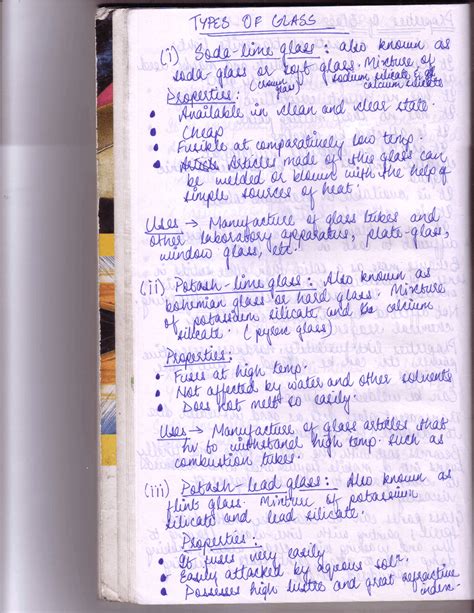 TYPES OF GLASS
(i) Soda-lime glass : also known as
soda-glass or soft glass. Mixture of
(crown glass) sodium silicate & calcium silicate
Properties:
• Available in clean and clear state.
• Cheap
• Fusible at comparatively low temp.
• Articles made of this glass can
be welded or blown with the help of
simple sources of heat.
Uses → Manufacture of glass tubes and
other laboratory apparatus, plate-glass,
window glass, etc.
(ii) Potash-lime glass : Also known as
bohemian glass or hard glass. Mixture
of potassium silicate and calcium
silicate. (pyrex glass)
Properties:
• Fuses at high temp.
• Not affected by water and other solvents
• Does not melt so easily.
Uses → Manufacture of glass articles that
hv to withstand high temp. such as
combustion tubes.
(iii) Potash-lead glass : Also known as
flint glass. Mixture of potassium
silicate and lead silicate.
Properties :
• It fuses very easily
• Easily attacked by aqueous solⁿ.
• Possesses high lustre and great refractive
index.